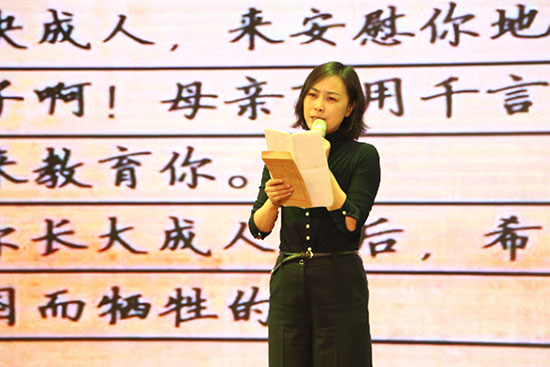 快成人，来安慰你地
子啊！母亲不用千言
来教育你。
你长大成人 后，希
国而牺牲的